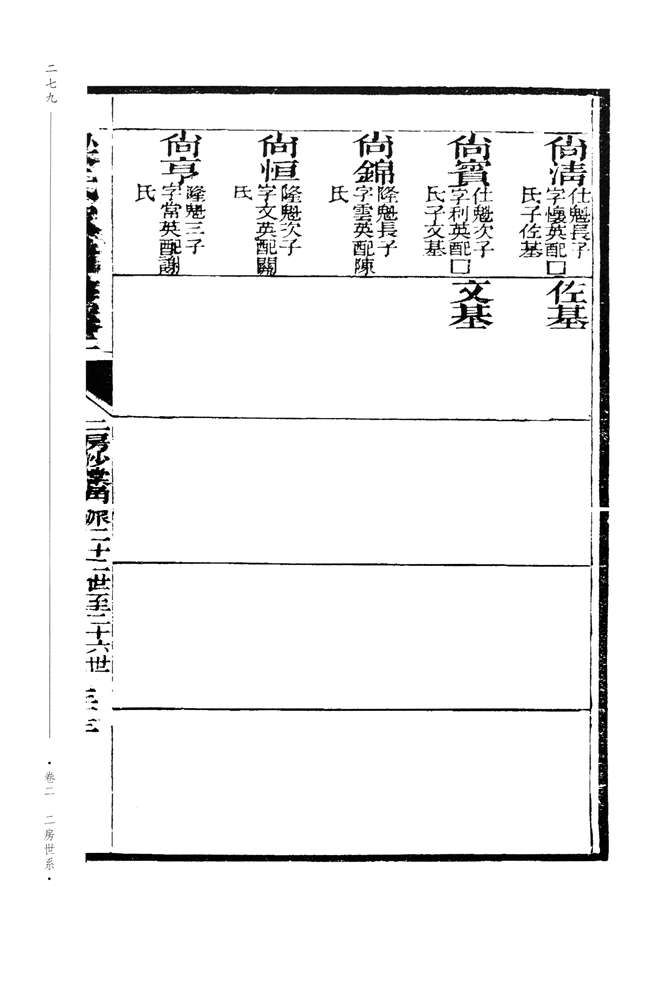 尙清
仕魁長子
字懷英配口
氏子佐基
佐基
尙賓
仕魁次子
字利英配口
氏子文基
文基
尙錦
隆魁長子
字雲英配陳
氏
尙恒
隆魁次子
字文英配關
氏
尙亨
隆魁三子
字常英配謝
氏
派二十二世至二十六世
二七九
·卷二 二房世系·